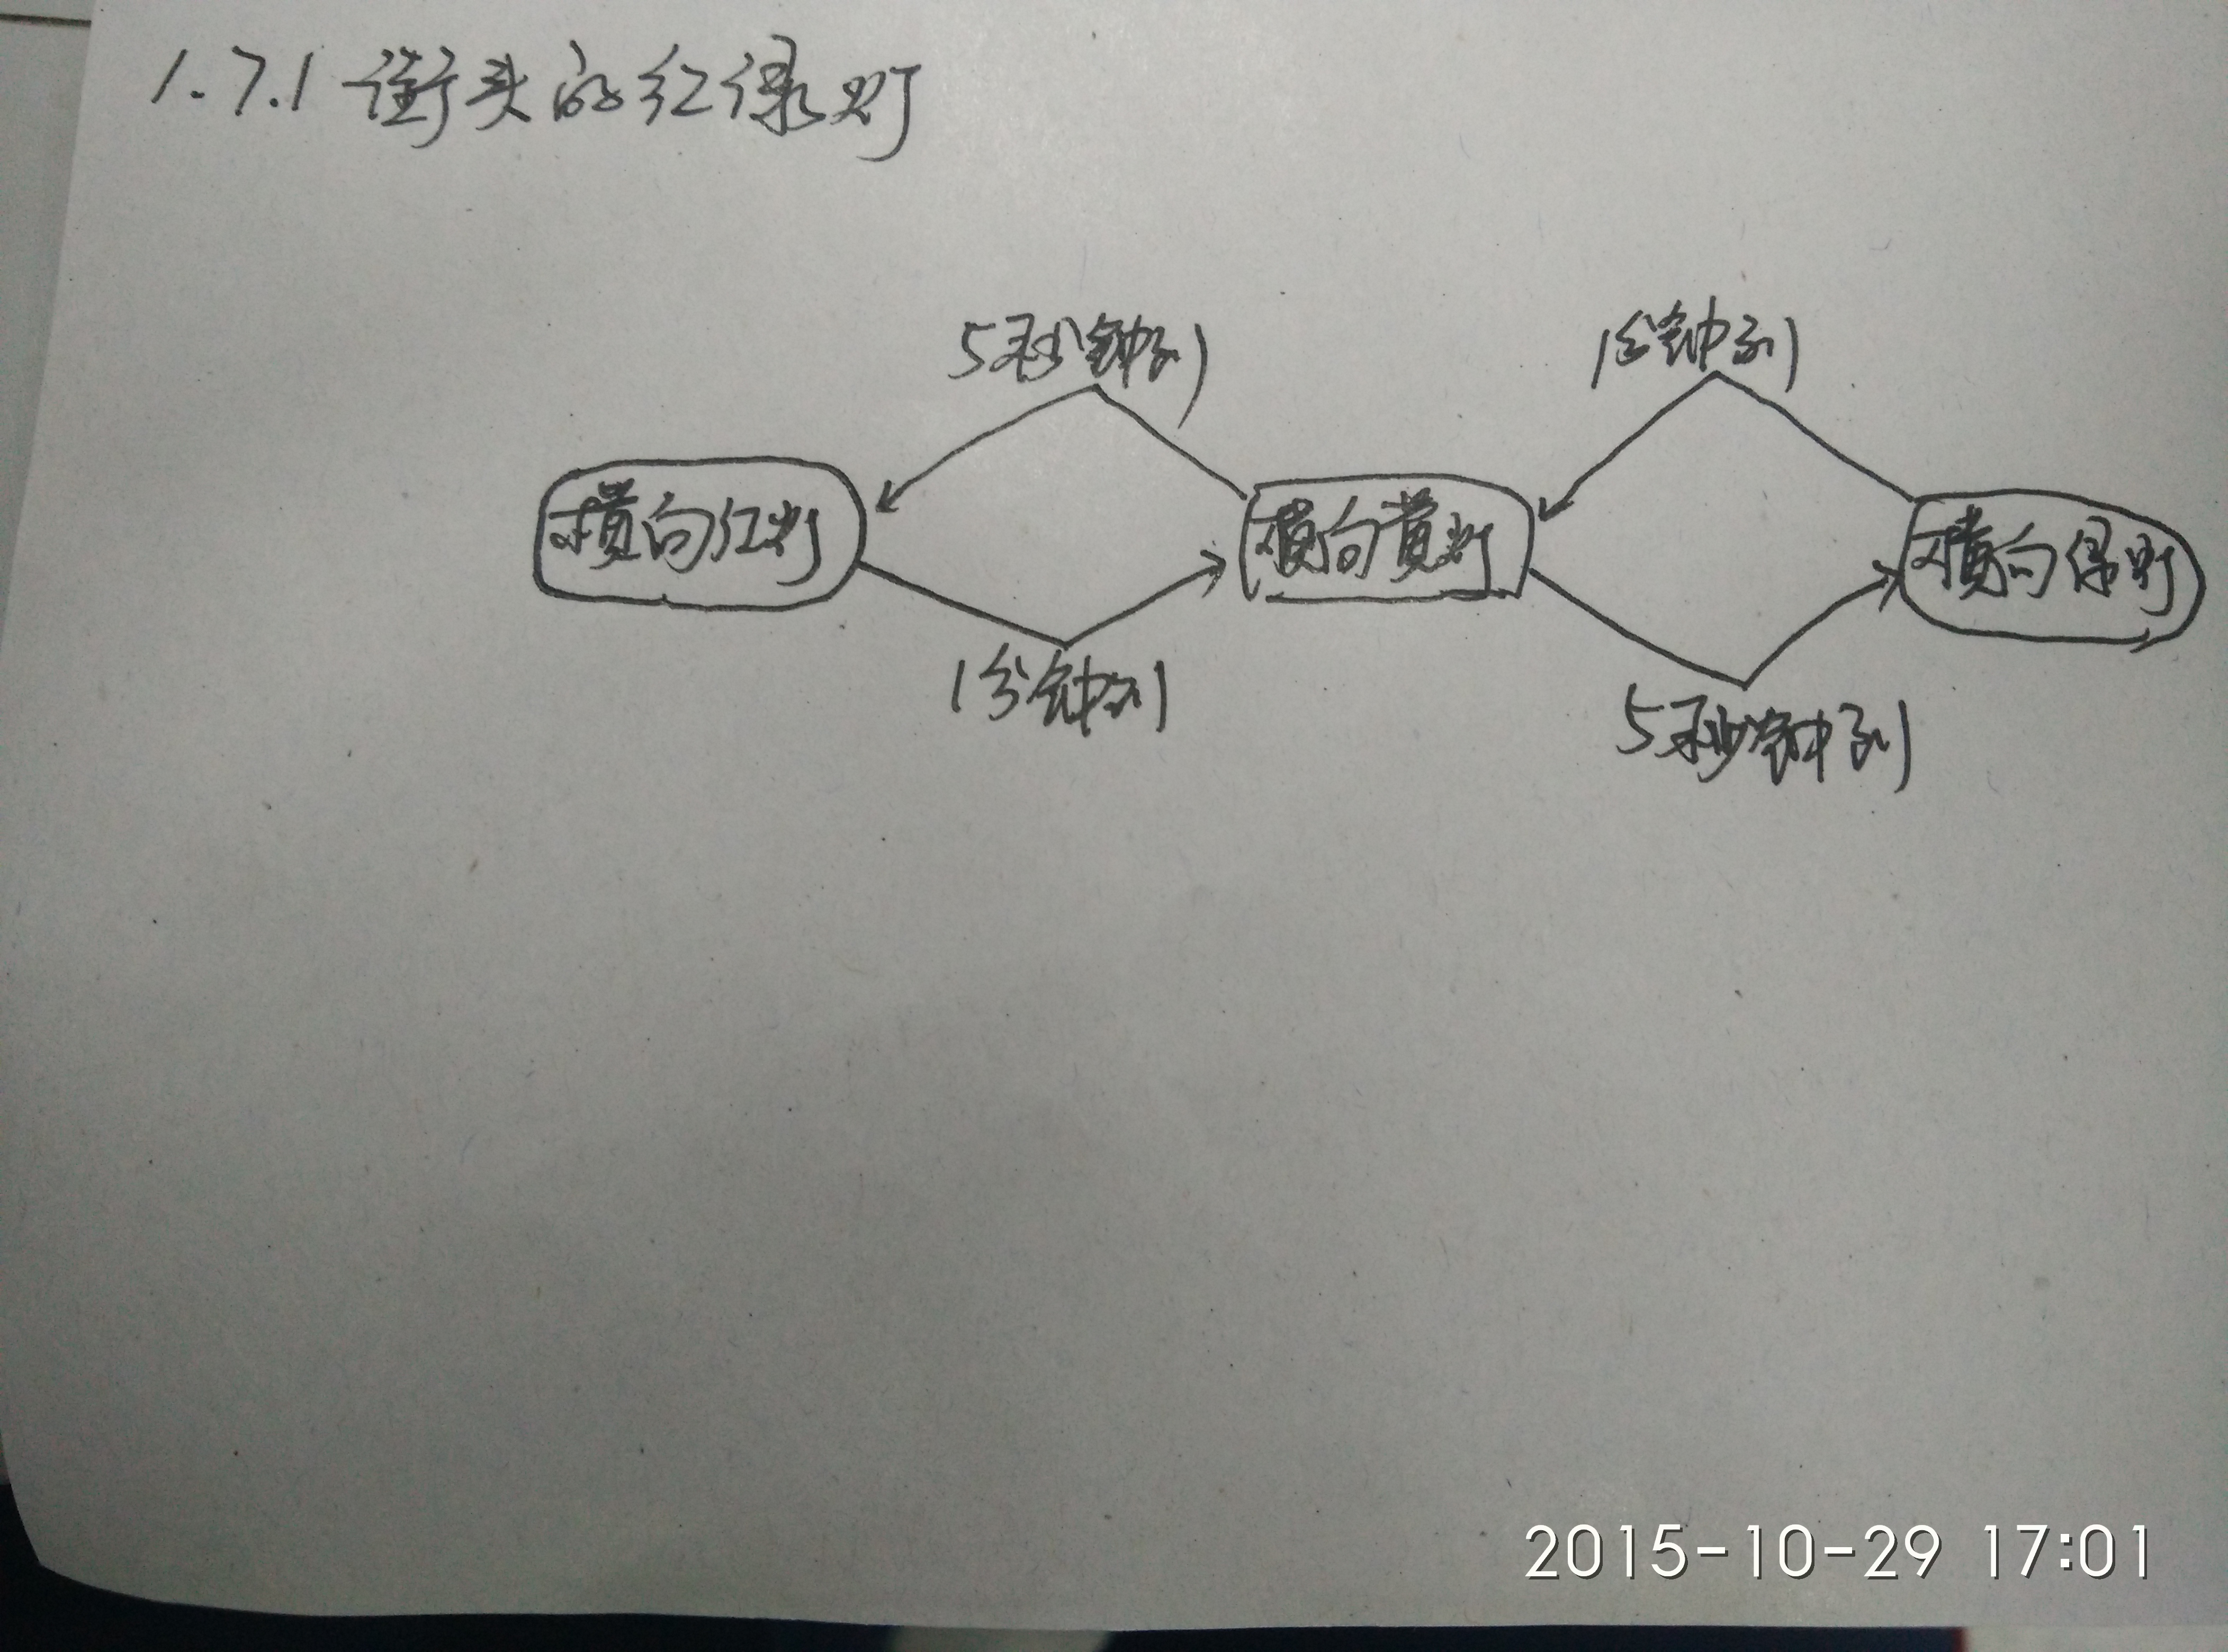 1.7.1 街头的红绿灯
5秒钟到
1分钟到
横向红灯
横向黄灯
横向绿灯
1分钟到
5秒钟到
2015-10-29 17:01